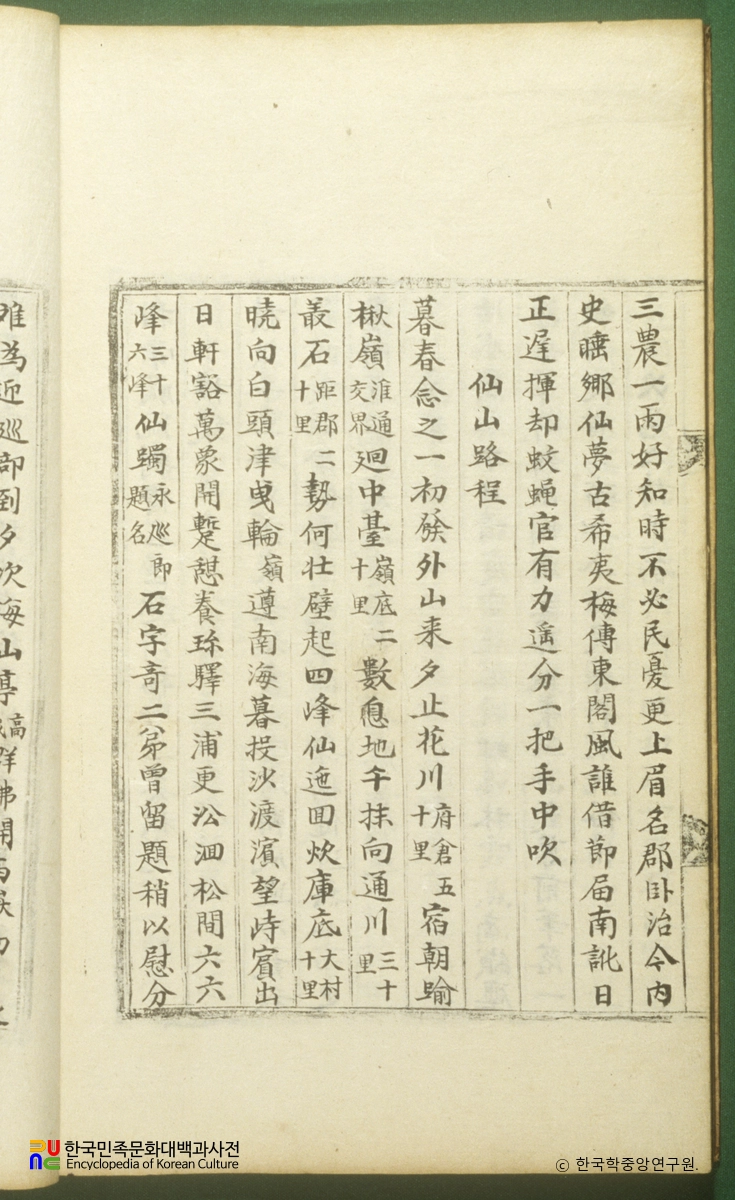 三農一雨好知時不必民憂更上眉名郡卧治今內
史睡鄉仙夢古希夷梅傳東閣風誰借節届南訛日
正遅揮却蚊蝇官有力遥分一把手中吹
仙山路程
暮春念之一初發外山来夕止花川府倉五十里宿朝踰
楸嶺淮通交界廻中臺嶺底二十里數息地午抹向通川三十里
叢石距郡二十里勢何壮壁起四峰仙迤囬炊庫底大村十里
曉向白頭津曳輪嶺遵南海暮投沙渡濱望峙賓出
日軒豁萬象開蹔憇養珎驛三浦更沿洄松間六六
峰三十六峰仙躅永巡郎題名石字奇二八弟曾留題稍以慰分
难為迎巡部到夕次海山亭高
한국민족문화대백과사전
Encyclopedia of Korean Culture
© 한국학중앙연구원.